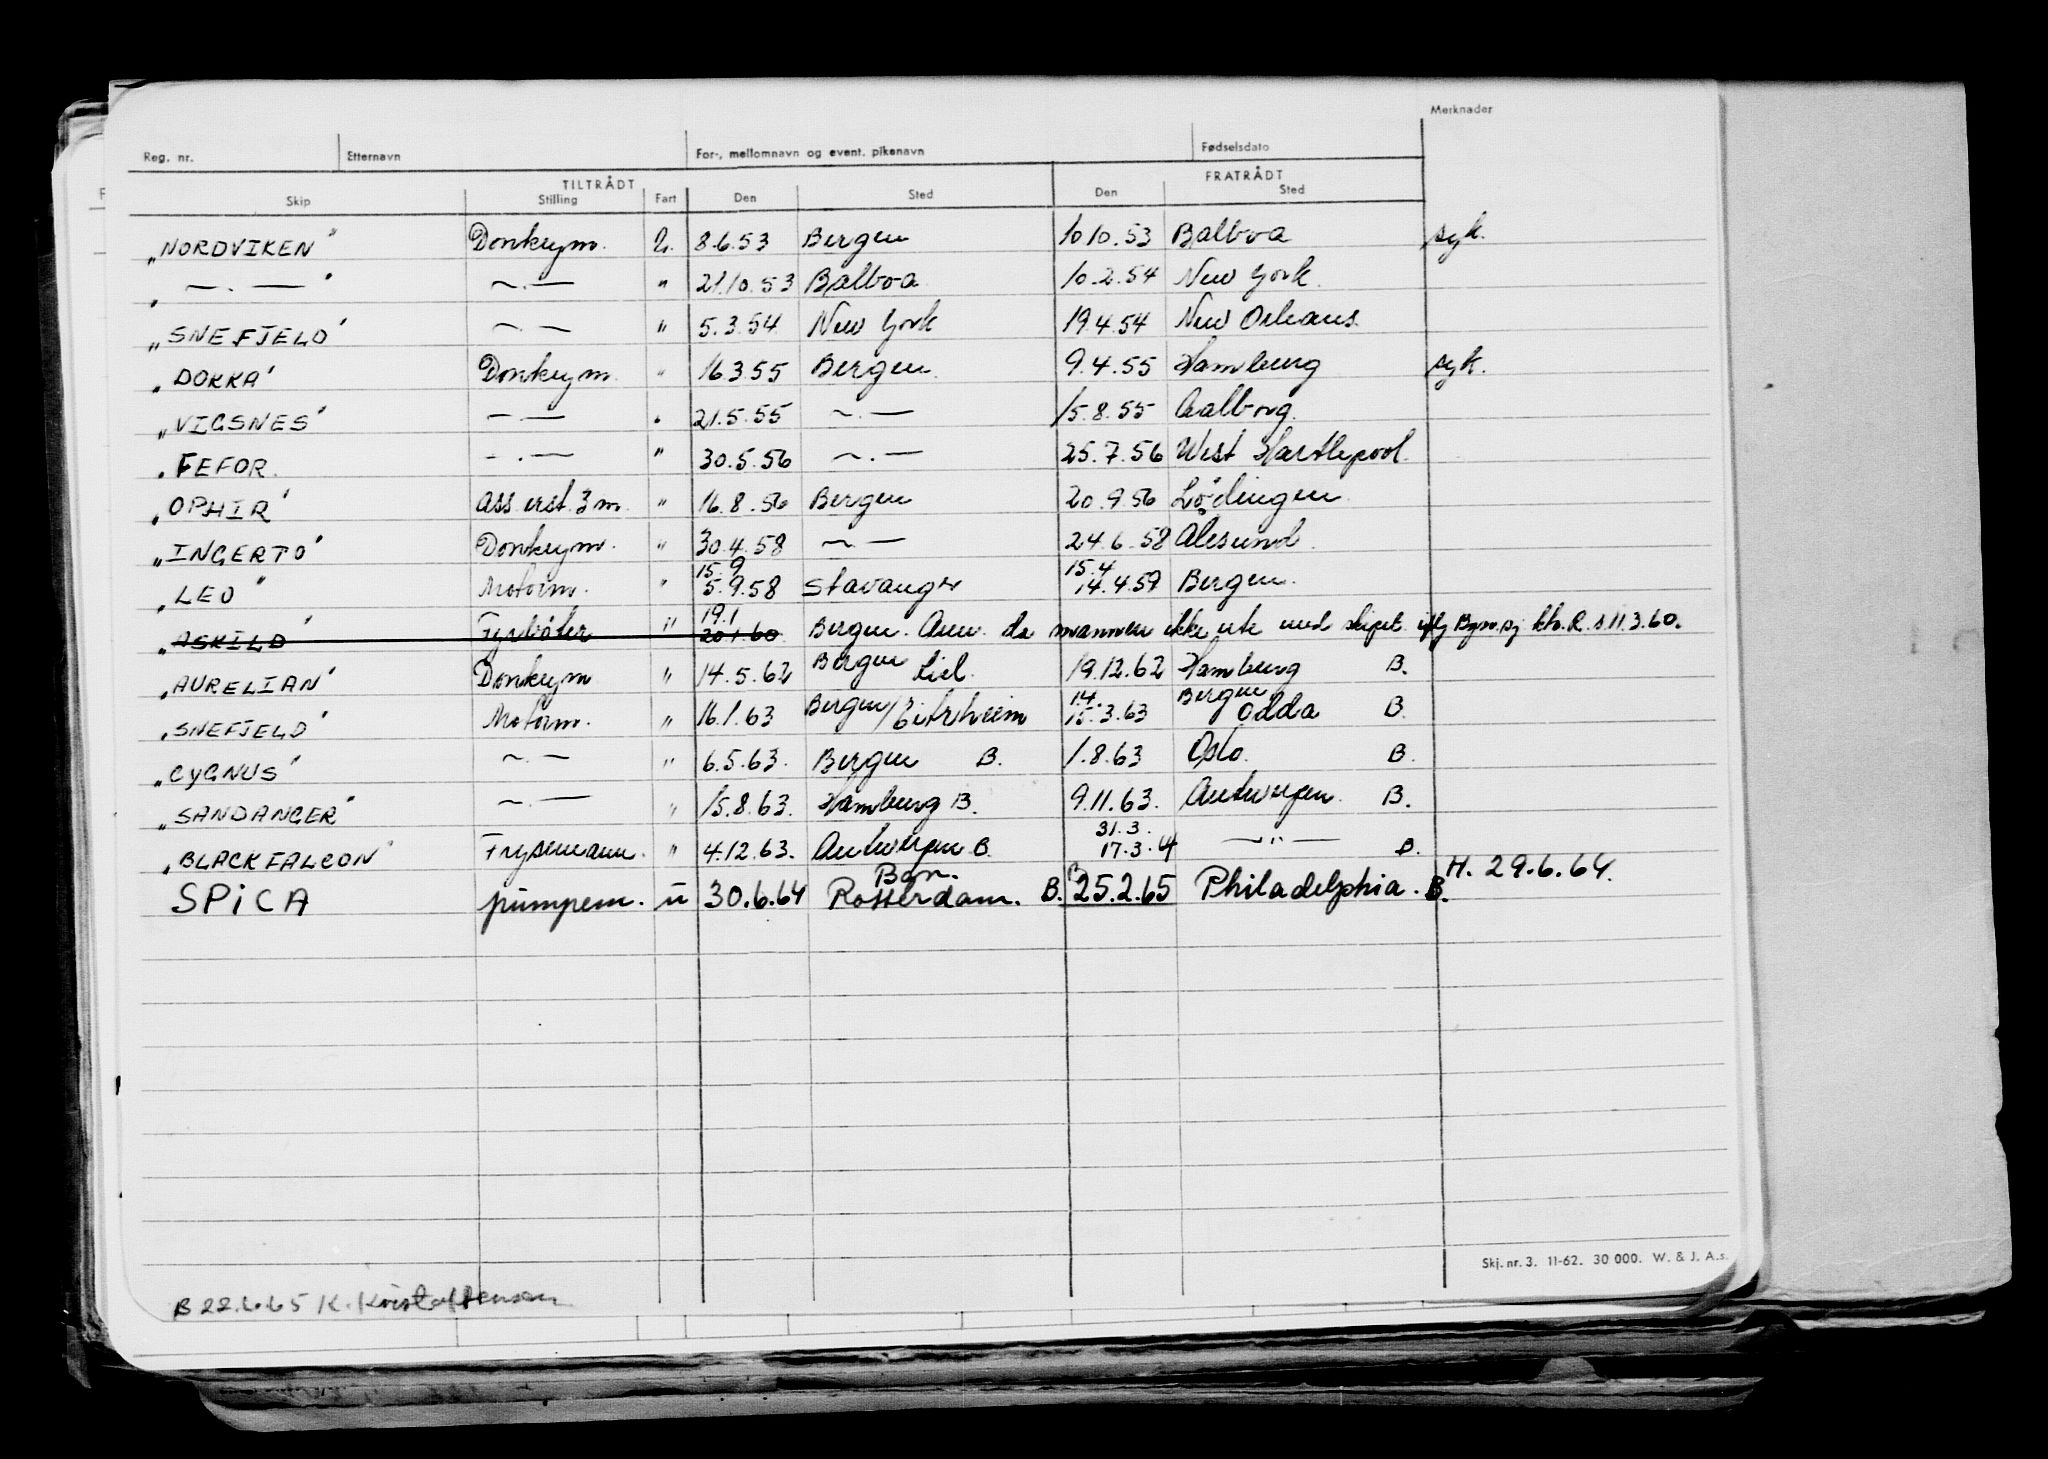 Merknader
Reg. nr. Etternavn For-, mellomnavn og event. pikenavn Fødselsdato
TILTRÅDT FRATRÅDT
Skip Stilling Fart Den Sted Den Sted
„NORDVIKEN" Donkeym. U. 8.6.53 Bergen 10 10.53 Balboa syk.
„ —.— " —.— " 21.10.53 Balboa 10.2.54 New York.
„SNEFJELD" —.— " 5.3.54 New York 19.4.54 New Orleans.
„DOKKA" Donkeym. " 16.3.55 Bergen. 9.4.55 Hamburg syk.
„VIGSNES" —.— " 21.5.55 —.— 15.8.55 Aalborg.
„FEFOR. —.— " 30.5.56 —.— 25.7.56 West Hartlepool.
„OPHIR" Ass. erst. 3 m. " 16.8.56 Bergen 20.9.56 Lödingen
„INGERTO" Donkeym. " 30.4.58 —.— 24.6.58 Ålesund.
15.9 15.4
„LEO" Motorm. " 5.9.58 Stavanger 14.4.59 Bergen.
19.1
„ASKILD" Fyrbøter " 20.1.60 Bergen. Ann. da mannen ikke ute med skipet iflg Bgn. sj. ktr. R.s 11.3.60.
„AURELIAN" Donkeym " 14.5.62 Bergen Kiel. 19.12.62 Hamburg B.
14. Bergen
„SNEFJELD" Motorm. " 16.1.63 Bergen/Eitrheim 15.3.63 Odda B.
„CYGNUS" —.— " 6.5.63. Bergen B. 1.8.63 Oslo. B.
„SANDANGER" —.— " 15.8.63. Hamburg B. 9.11.63. Antwerpen. B.
31.3.
„BLACK FALCON" Frysemann. " 4.12.63. Antwerpen B. 17.3.4 —"— B.
Bgn. B H. 29.6.64.
SPiCA pumpem. u 30.6.64 Rotterdam. B. 25.2.65 Philadelphia. B.
Skj. nr. 3. 11-62. 30 000. W. & J. A.s.
B 22.6.65 K. Kristoffersen